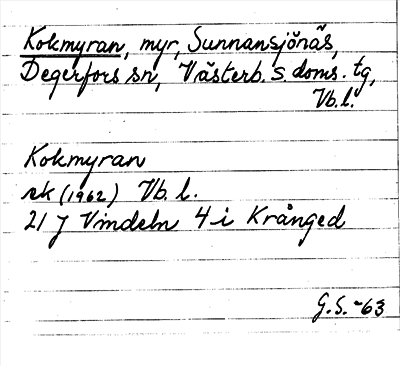 Kokmyran, myr, Sunnansjönäs,
Degerfors sn, Västerb. s. doms. tg,
Vb.l.
Kokmyran
ek (1962) Vb. l.
21 J Vindeln 4 i Krånged
G.S. -63